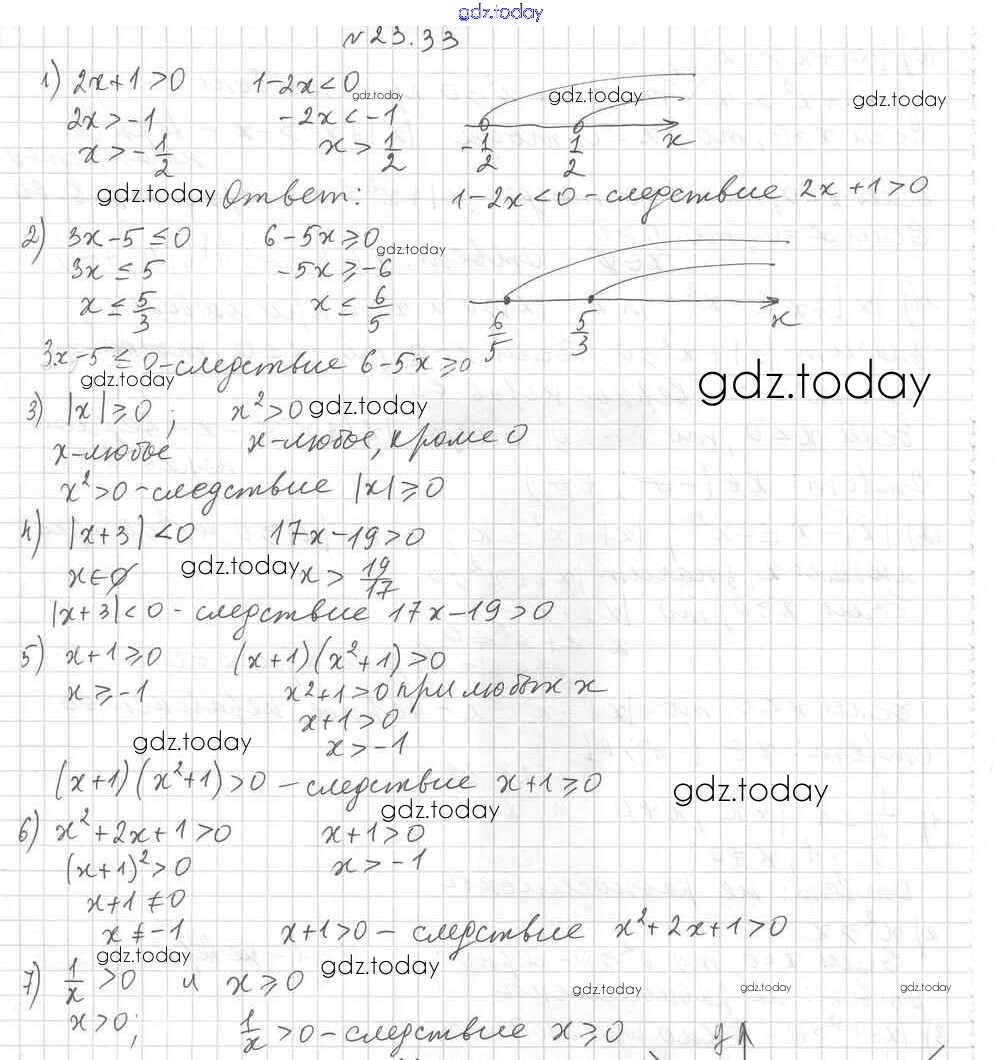 gdz.today
№23.33
1) 2x+1>0 1-2x<0 gdz.today gdz.today gdz.today
2x>-1 -2x<-1
x>-1/2 x>1/2 -1/2 1/2 x
gdz.today Ответ: 1-2x<0-следствие 2x+1>0
2) 3x-5≤0 6-5x≥0 gdz.today
3x≤5 -5x≥-6
x≤5/3 x≤6/5 6/5 5/3 x
3x-5≤0-следствие 6-5x≥0
gdz.today gdz.today
3) |x|≥0; x²>0 gdz.today
x-любое x-любое, кроме 0
x²>0-следствие |x|≥0
4) |x+3|<0 17x-19>0
x∈∅ gdz.today x>19/17
|x+3|<0-следствие 17x-19>0
5) x+1≥0 (x+1)(x²+1)>0
x≥-1 x²+1>0 при любых x
x+1>0
gdz.today x>-1
(x+1)(x²+1)>0-следствие x+1≥0 gdz.today
gdz.today
6) x²+2x+1>0 x+1>0
(x+1)²>0 x>-1
x+1≠0
x≠-1 x+1>0-следствие x²+2x+1>0
gdz.today gdz.today
7) 1/x>0 и x≥0 gdz.today gdz.today gdz.today
x>0; 1/x>0-следствие x≥0 y